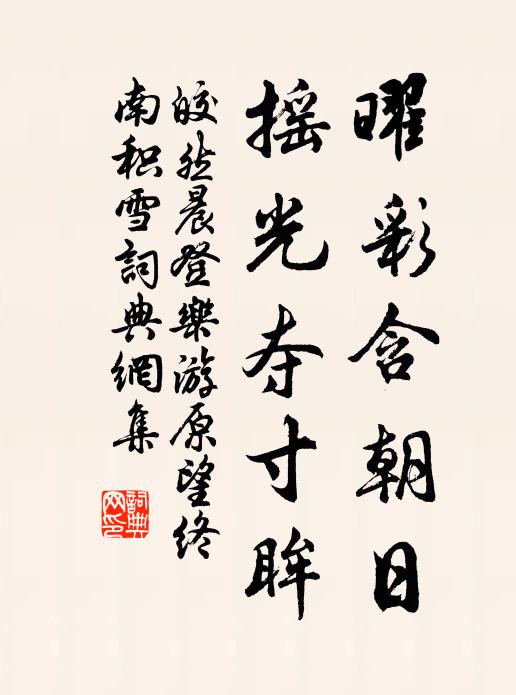 曜彩含朝日
摇光夺寸眸
皎然晨登樂游原望终
南积雪詞典網集
詞典
网印